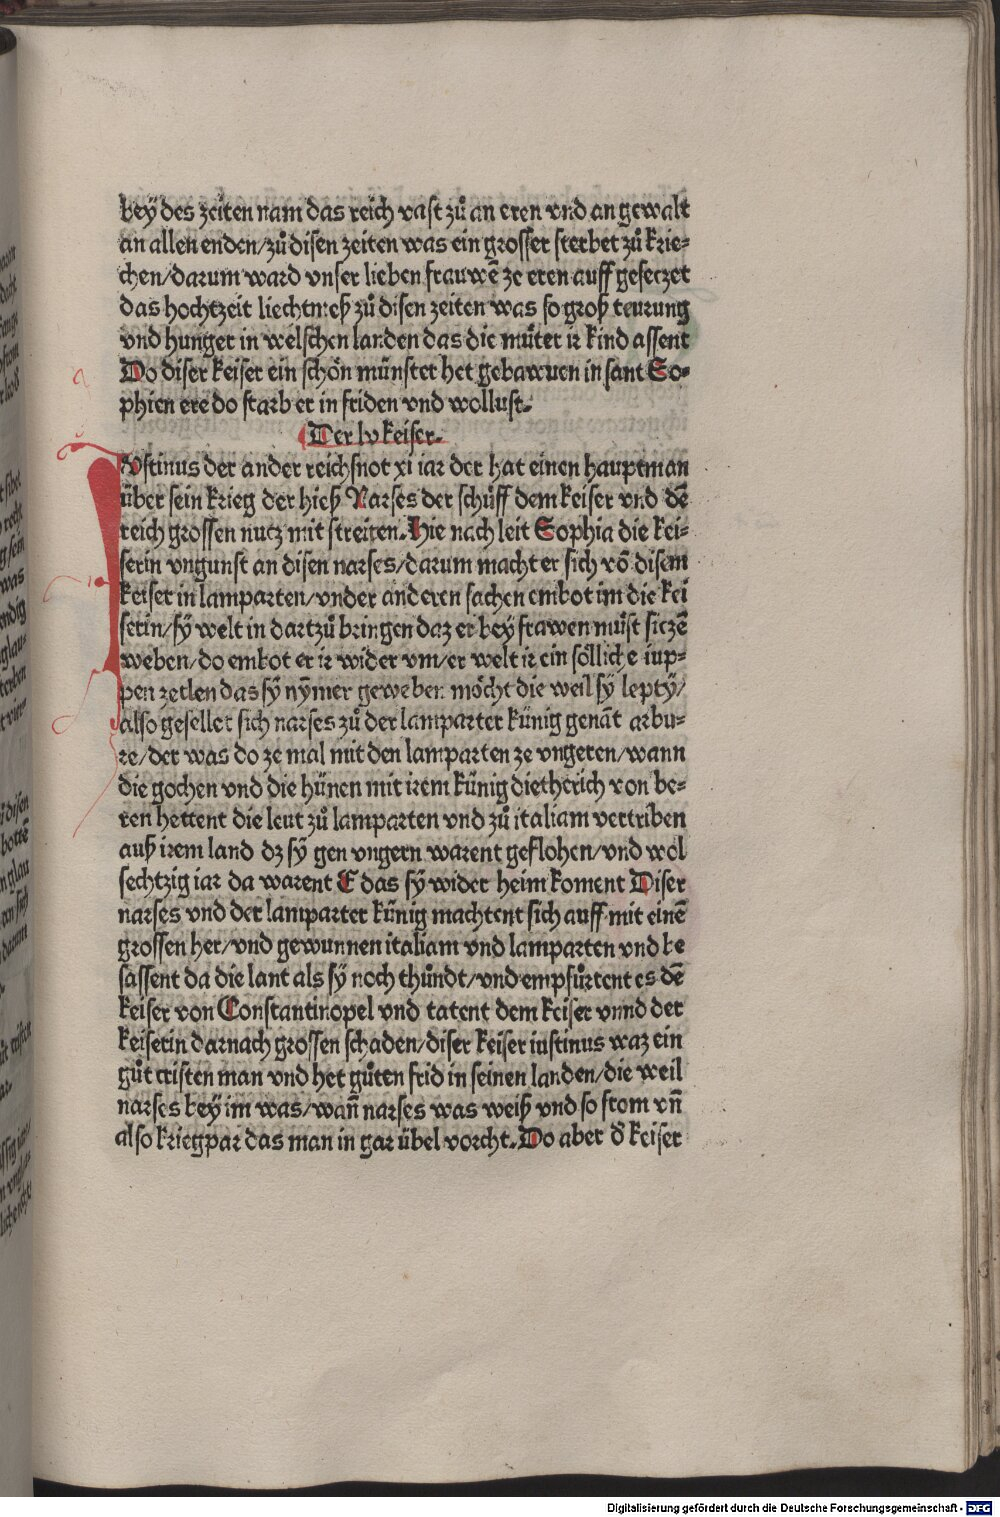 bey des zeiten nam das reich vast zů an eren vnd an gewalt
an allen enden/zů disen zeiten was ein grosser sterbet zů krie=
chen/darum ward vnser lieben frauwē ze eren auff geseczet
das hochtzeit liechtmeß zů disen zeiten was so groß teurung
vnd hunger in welschen landen das die můter ir kind assent
Do diser keiser ein schön münster het gebawuen in sant So=
phien ere do starb er in friden vnd wollust.
Der lv keiser.
Iustinus der ander reichsnot xi iar der hat einen hauptman
über sein krieg der hieß Narses der schůff dem keiser vnd dē
reich grossen nutz mit streiten. Hie nach leit Sophia die kei=
serin vngunst an disen narses/darum macht er sich vō disem
keiser in lamparten/vnder anderen sachen embot im die kei
serin/sÿ welt in dartzů bringen daz er beÿ frawen můst siczē
weben/do embot er ir wider vm/er welt ir ein sölliche iup=
pen zetlen das sÿ nÿmer geweben möcht die weil sÿ leptÿ/
also gesellet sich narses zů der lamparter künig genāt arbu=
re/der was do ze mal mit den lamparten ze vngeren/wann
die gochen vnd die hünen mit irem künig dietherich von be=
ren hettent die leut zů lamparten vnd zů italiam vertriben
auß irem land dz sÿ gen vngern warent geflohen/vnd wol
sechtzig iar da warent E das sÿ wider heim koment Diser
narses vnd der lamparter künig machtent sich auff mit einē
grossen her/vnd gewunnen italiam vnd lamparten vnd be
sassent da die lant als sÿ noch thůndt/vnd empfůrtent es dē
keiser von Constantinopel vnd tatent dem keiser vnnd der
keiserin darnach grossen schaden/diser keiser iustinus waz ein
gůt cristen man vnd het gůten frid in seinen landen/die weil
narses beÿ im was/wañ narses was weiß vnd so from vñ
also kriegpar das man in gar übel vorcht. Do aber d̄ keiser
Digitalisierung gefördert durch die Deutsche Forschungsgemeinschaft - DFG